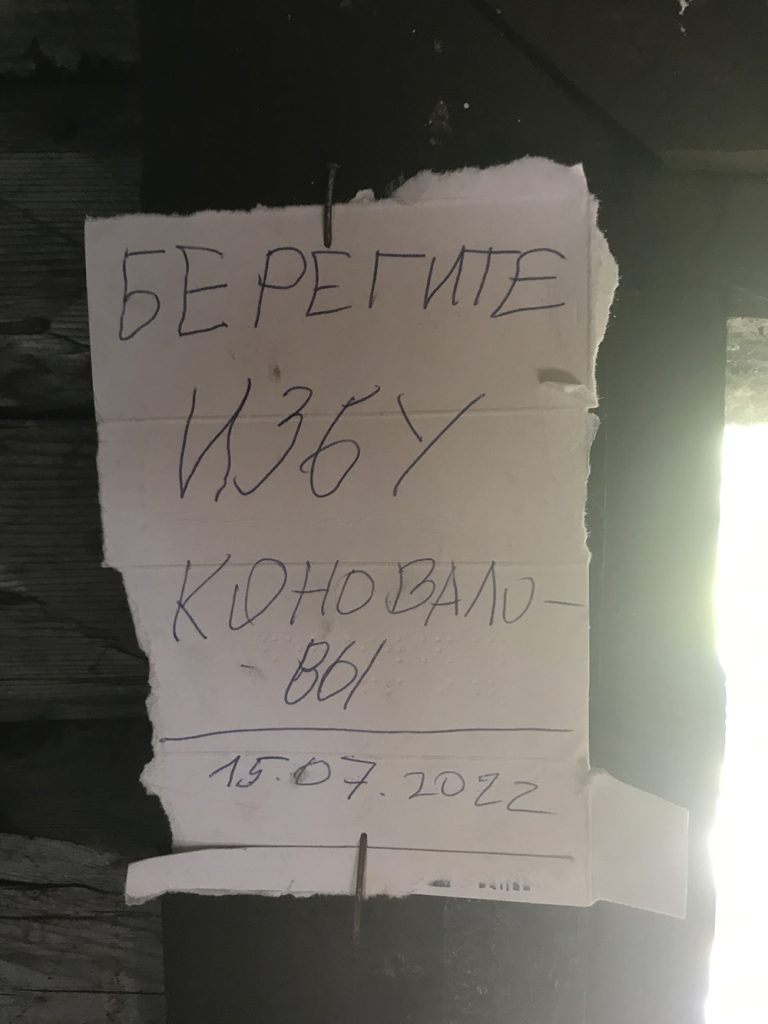 БЕРЕГИТЕ
ИЗБУ
КОНОВАЛО-
ВЫ
15.07.2022